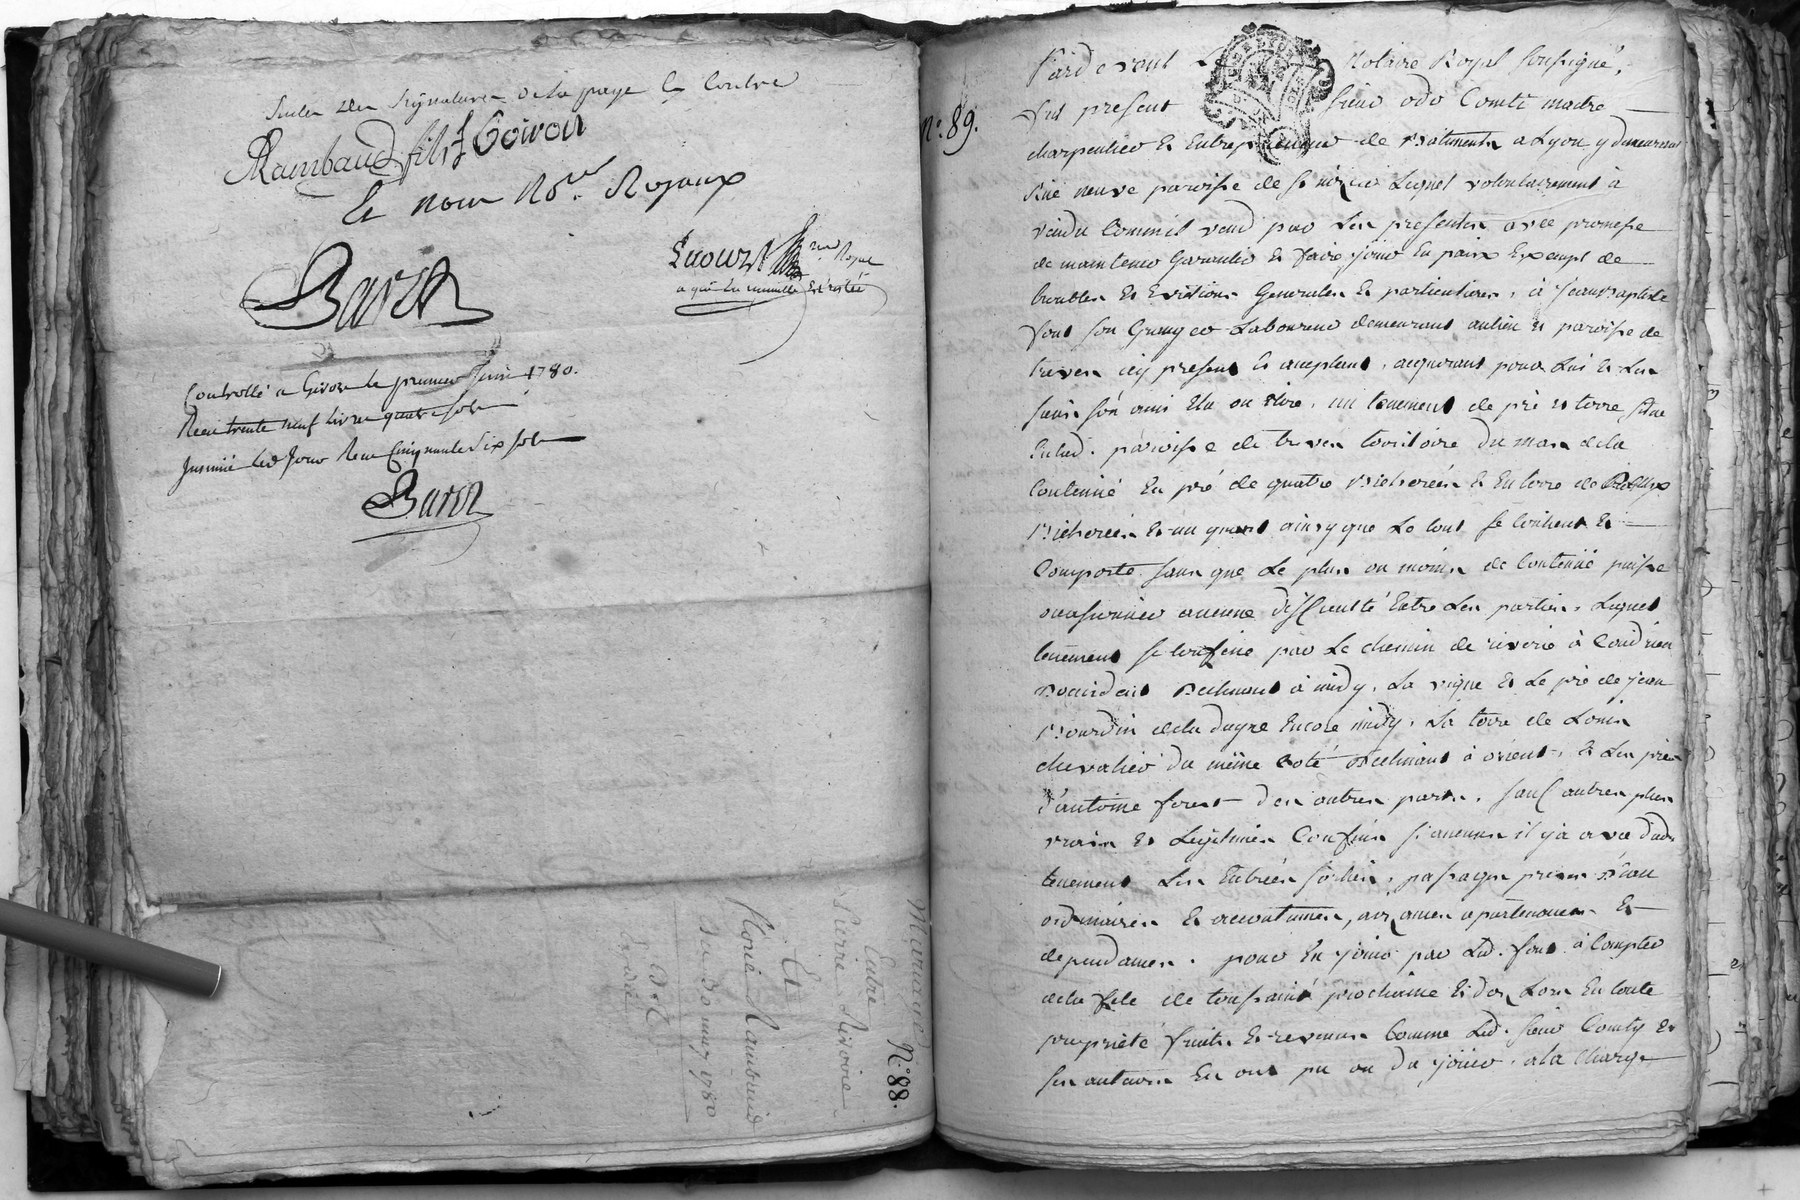 Suite des Signatures de la page cy Contre
Rambaud fils f Goiron
Et nous No.res Royaux
Baron
a qui la minutte Est restée
Controllé a Givors le premier Juin 1780.
Reçu trente neuf livres quatre sols
Insinué led. Jour Reçu Cinquante Six sols
Baron
Mariage N.° 88.
Entre
Pierre Rivoire
Et
Florie Rambaud
Du 30 may 1780
N.° 89.
Pardevant Le Notaire Royal soussigné,
fut présent sieur odo Comte maitre
charpentier Et Entrepreneur de Batiments a Lyon y demeurant
Rüe neuve paroisse de st nizier Lequel volontairement à
vendu Comme il vend par Les presentes avec promesse
de maintenir Garantir Et faire joüir En paix Exempt de
troubles Et Evictions Generales Et particulieres, à jean Baptiste
font son Granger Laboureur demeurant audieu Et paroisse de
treves icy present Et acceptant, acquerant pour Lui Et Les
siens son ami Elu ou Elire, un tenement de pré Et terre situé
Enlad. paroisse de treves territoire du mas dela
Contenüe En pré de quatre Bicherées Et En terre de
Bicherées Et un quart ainsy que Le tout se Contient Et
Comporte sans que Le plus ou moins de Contenüe puisse
occasionner aucune difficulté Entre Les parties, Lequel
tenement se Confine par Le chemin de riverie à Condrieu
declinant à midy, La vigne Et Le pré de jean
Bourdin Encore midy, La terre de Loüis
chevalier du même coté declinant à orient, Et Les prés
d'antoine forest des autres parts, sauf autres plus
vrais Et Legitimes Confins si aucuns il y a avec dud.
tenement Les Entrées sorties, passages prises d'Eau
ordinaires Et accoutumés, aizances apartenances Et
dependances. pour En joüir par Led. font à Compter
dela fete de toussaint prochaine Et des Lors En toute
proprieté fruits Et revenus Comme Led. sieur Comty Et
ses auteurs En ont pu ou du joüir, ala Charge